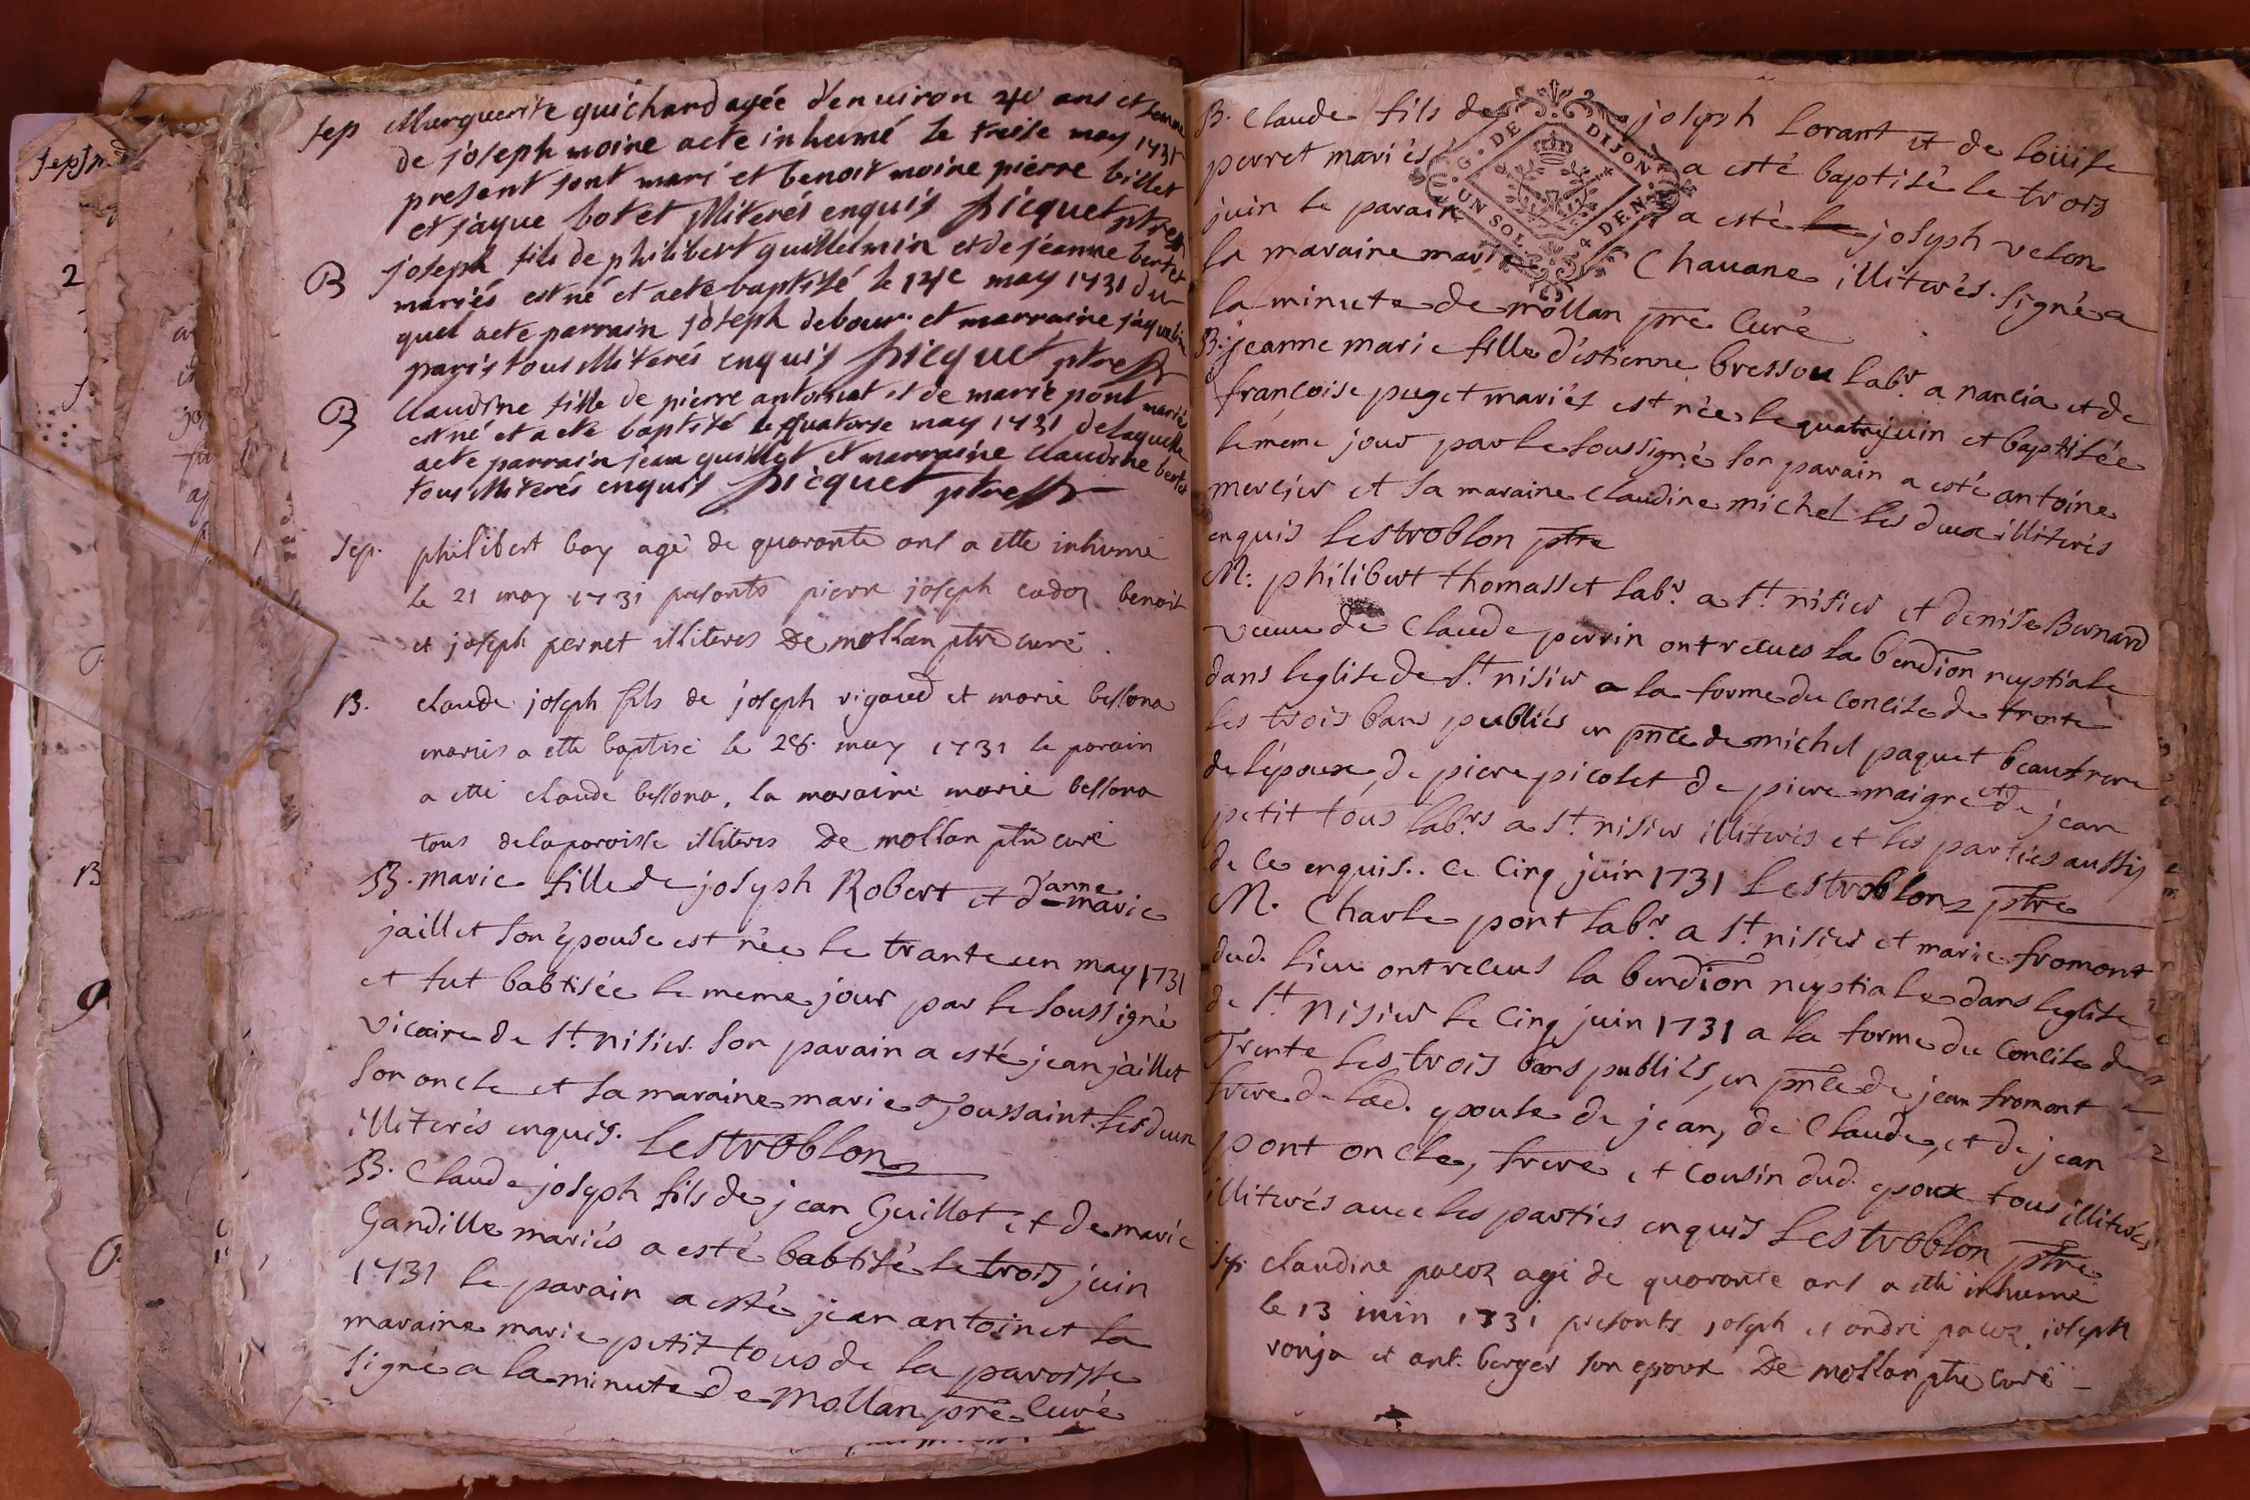 sep Marguerite guichard agée d'enuiron 40 ans et femme
de joseph moine a eté inhumé le treise may 1731
present sont mari et benoit moine pierre billet
et jaque botet illiterés enquis picquet ptre
B joseph fils de philibert guillelmin et de jéanne bertet
mariés est né et a eté baptisé le 14e may 1731 du
quel a eté parrain joseph debour et marraine jaqueline
paris tous illiterés enquis picquet ptre
B Claudine fille de pierre antoinat et de marie pont mariés
est né et a eté baptisé le quatorse may 1731 de laquelle
a eté parrain jean guillot et marraine claudine bertet
tous illiterés enquis picquet ptre
sep. philibert boy agé de quarante ans a esté inhumé
le 21 may 1731 presents pierre joseph cadoz benoit
et joseph pernet illiteres De mollan ptre curé.
B. claude joseph fils de joseph rigaud et marie bessona
mariés a esté baptisé le 28. may 1731 le parain
a esté claude bessona, la maraine marie bessona
tous de la paroisse illiteres De mollan ptre curé
B. marie fille de joseph Robert et d'anne marie
jaillet son épouse est née le trante un may 1731
et fut babtisée le meme jour par le soussigné
vicaire de st. nisier. son parain a esté jean jaillet
son oncle et sa maraine marie Toussaint. les deux
illiterés enquis. Lestroblon
B. Claude joseph fils de jean Guillot et de marie
Gandille mariés a esté babtisé le trois juin
1731 le parain a esté jean antoinet la
maraine marie petit tous de la paroisse
signé a la minute De Mollan pre. Curé
B. Claude fils de joseph Lorant et de Loüise
G. DE DIJON
UN SOL. 4 DEN
perret mariés a esté baptisé le trois
juin le parain a esté le joseph velon
la maraine marie Chauane illiterés. signé a
la minute De mollan pre Curé
B. jeanne marie fille d'estienne bressou labr. a nancia et de
françoise puget mariés est née le quatre juin et baptisée
le meme jour par le soussigné son parain a esté antoine
mercier et sa maraine claudine michel les deux illiterés
enquis Lestroblon ptre
M: philibert thomasset labr. a st. nisier et denise Bernard
veuue de Claude perrin ont receues la bendion nuptiale
dans leglise de st. nisier a la forme du Concile de trente
les trois bans publiés en pnce de michel paquet beaufrere
de l'epoux, de piere picolet de piere maigre et de jean
petit tous labrs a st. nisier illiterés et les parties aussy
de ce enquis.. Ce Cinq juin 1731 Lestroblon ptre
M. Charle pont labr. a st. nisier et marie fromont
dud. lieu ont receus la bendion nuptiale dans leglise
de st. nisier le Cinq juin 1731 a la forme du Concile de
Trente les trois bans publiés, en pnce de jean fromont
frere de lad. epouse de jean, de Claude, et de jean
pont oncle, frere et cousin dud. epoux tous illiterés
illiterés auec les parties enquis Lestroblon ptre
sep. claudine pacoz agé de quarante ans a esté inhumé
le 13 iuin 1731 presents joseph et andré pacoz joseph
ronja et ant. berger son epoux De mollan ptre curé